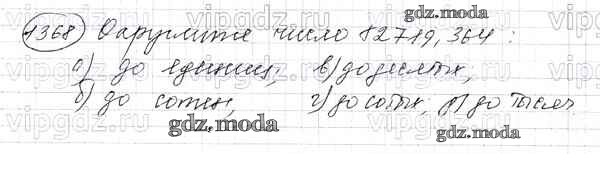 1368) Округлите число 12719,364 :
а) до единиц; в) до десятых;
б) до сотен; г) до сотых, д) до тысяч.
gdz.moda
gdz.moda
gdz.moda
vipgdz.ru vipgdz.ru vipgdz.ru